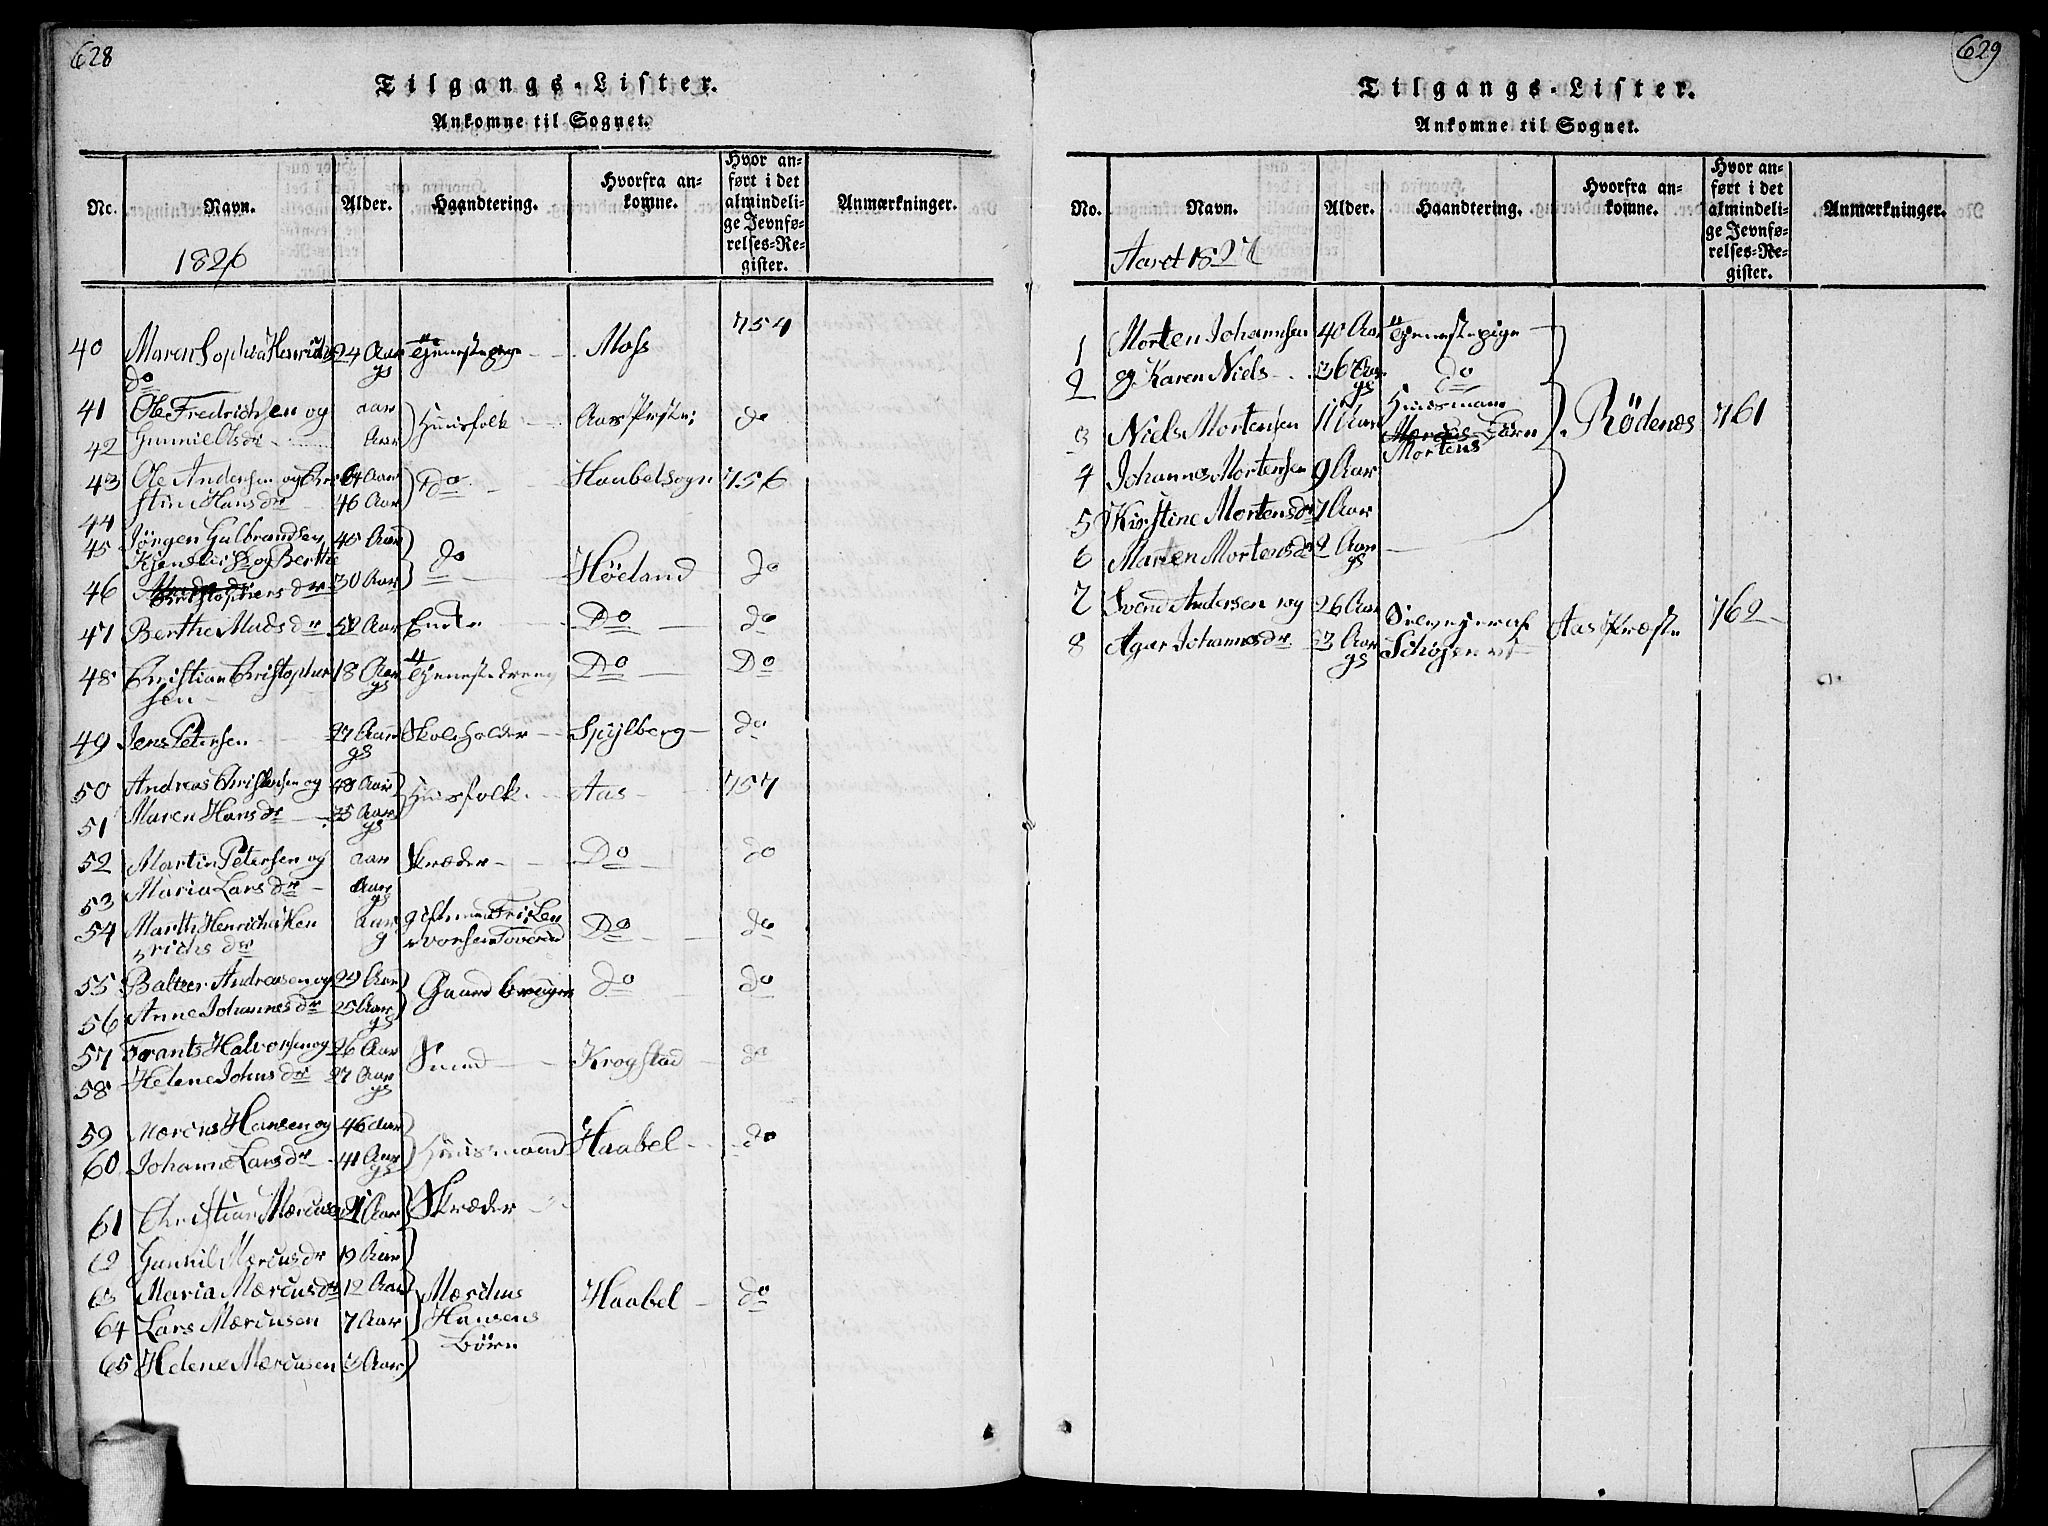 628
Tilgangs-Lister.
Ankomne til Sognet.
No. Navn. Alder. Haandtering. Hvorfra ankomne. Hvor anført i det almindelige Jevnførelses-Register. Anmærkninger.
1826
40 Maren Sophia Henrichs 24 Aar Tjenestepige Moss 754
do gs
41 Ole Fredrichsen og aar Huusfolk Aas Præste: do
42 Gunnil Olsdr Aar
43 Ole Andersen og Chri 64 Aar Do Haabelsogn 756
44 stine Hansdr 46 Aar
45 Jörgen Gulbrandsen 45 Aar
og Berthe do Höeland do
46 Christophersdr 30 Aar
47 Berthe Madsdr 52 Aar Enke Do do
48 Christian Christopher 18 Aar Tjenestedreng Do Do
sen gs
49 Jens Petersen 27 Aar Skoleholder Spylberg do
gs
50 Andreas Christensen og 48 Aar Huusfolk Aas 757
51 Maren Hansdr 35 Aar
gs
52 Martin Petersen og aar Skræder Do do
53 Maria Larsdr Aar
gs
54 Marth Henricha Hen Aar Do do
richsdr g
55 Baltzer Andreasen og 29 Aar Gaardbruger do do
56 Anne Johannesdr 25 Aar
gs
57 Frants Halvorsen og 26 Aar Smed Krogstad do
58 Helene Johnsdr 27 Aar
gs
59 Marcus Hansen og 46 Aar Huusmand Haabel do
60 Johanne Larsdr 41 Aar
gs
61 Christian Marcusen 21 Aar Skræder
62 Gunnil Marcusdr 19 Aar
63 Maria Marcusdr 12 Aar Marchus Haabel do
64 Lars Marcusen 7 Aar Hansens
65 Helene Marcusen 3 Aar börn
629
Tilgangs-Lister.
Ankomne til Sognet.
No. Navn. Alder. Haandtering. Hvorfra ankomne. Hvor anført i det almindelige Jevnførelses-Register. Anmærkninger.
Aaret 1827
1 Morten Johannsen 40 Aar Tjenestepige
2 og Karen Niels 36 Aar do
gs Huusmand
3 Niels Mortensen 11 Aar Börn Rödenes 761
Mortens
4 Johannes Mortensen 9 Aar
5 Kirstine Mortensdr 7 Aar
6 Maren Mortensdr 2 Aar
gs
7 Svend Andersen og 26 Aar Selvejer af Aas Præste 762
8 Agar Johannesdr Aar
gs